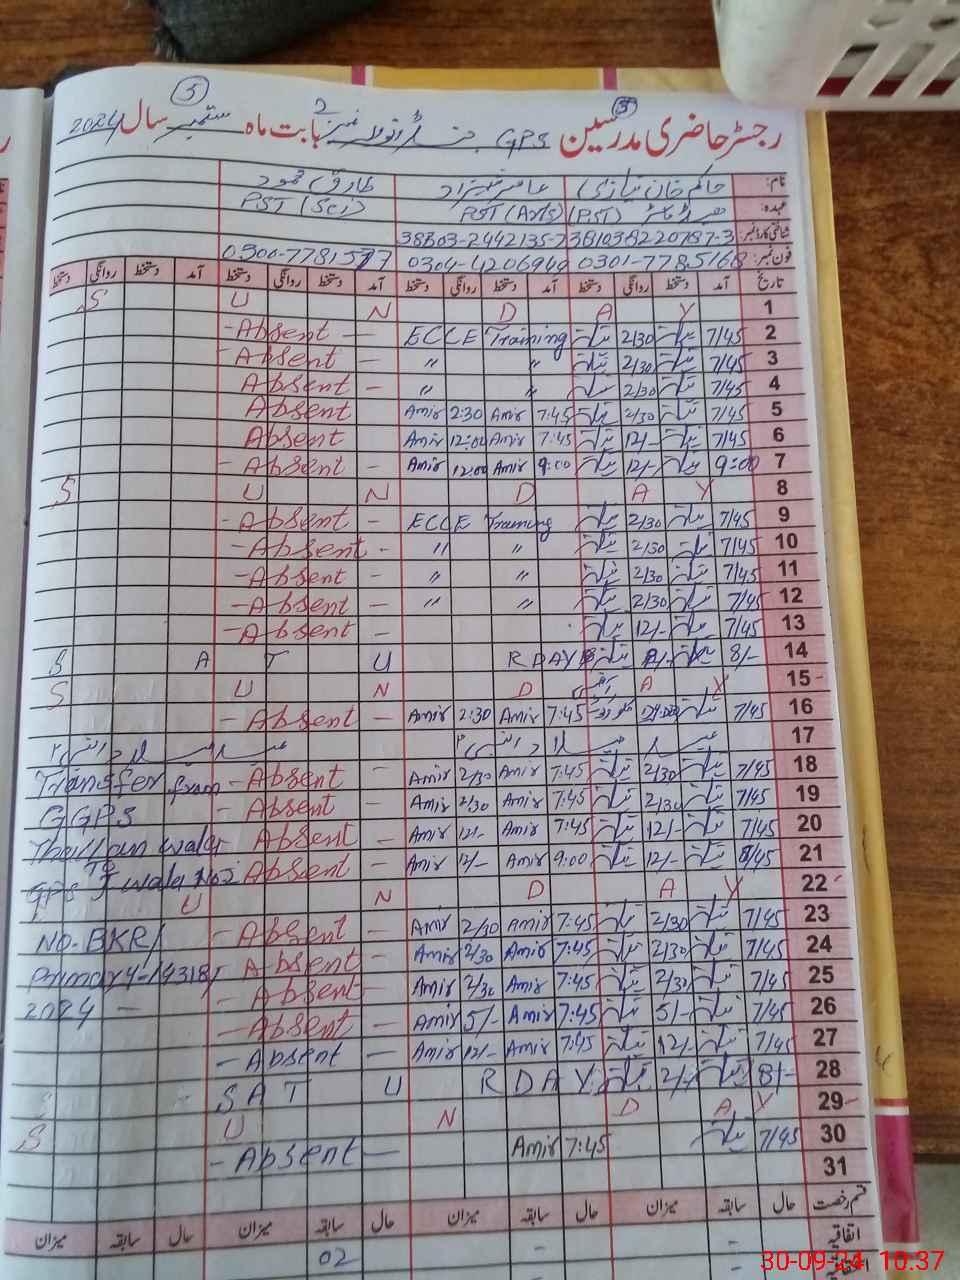 5 5
رجسٹر حاضری مدرسین GPS بابت ماہ ستمبر سال 2024
نام: حاکم خان نیازی طارق محمود
عہدہ: (PST) PST (Arts) PST (Sci)
شناختی کارڈ نمبر: 381038220787-3 38303-2442135-7
فون نمبر: 0301-7785168 0304-4206940 0300-7781577
تاریخ آمد دستخط روانگی دستخط آمد دستخط روانگی دستخط آمد دستخط روانگی دستخط آمد دستخط روانگی دستخط
S U N D A Y 1
- Absent - ECCE Training 2/30 7/45 2
- Absent - " " 2/30 7/45 3
Absent - " " 2/30 7/45 4
Absent Amir 2:30 Amir 7:45 2/30 7/45 5
Absent Amir 12:00 Amir 7:45 12/- 7/45 6
- Absent - Amir 12:00 Amir 9:00 12/- 9:00 7
S U N D A Y 8
- Absent - ECCE Training 2/30 7/45 9
- Absent - " " 2/30 7/45 10
- Absent - " " 2/30 7/45 11
- Absent - " " 2/30 7/45 12
- Absent - 12/- 7/45 13
S A T U R D A Y 8/- 14
S U N D A Y 15
- Absent - Amir 2:30 Amir 7:45 7/45 16
17
Transfer from - Absent - Amir 2/30 Amir 7:45 2/30 7/45 18
GGPS - Absent - Amir 2/30 Amir 7:45 2/30 7/45 19
wala Absent - Amir 12/- Amir 7:45 12/- 7/45 20
GPS To wala No 2 Absent - Amir 12/- Amir 9:00 12/- 8/45 21
U N D A Y 22
NO-BKR/ - Absent - Amir 2/30 Amir 7:45 2/30 7/45 23
Primary 4-14318/ - Absent - Amir 2/30 Amir 7:45 2/30 7/45 24
2024 - - Absent - Amir 2/30 Amir 7:45 2/30 7/45 25
- Absent - Amir 5/- Amir 7:45 5/- 7/45 26
- Absent - Amir 12/- Amir 7:45 12/- 7/45 27
S A T U R D A Y 8/- 28
S U N D A Y 29
- Absent - Amir 7:45 7/45 30
31
قسم رخصت حال سابقہ میزان حال سابقہ میزان حال سابقہ میزان حال سابقہ میزان
اتفاقیہ - - 02
30-09-24 10:37